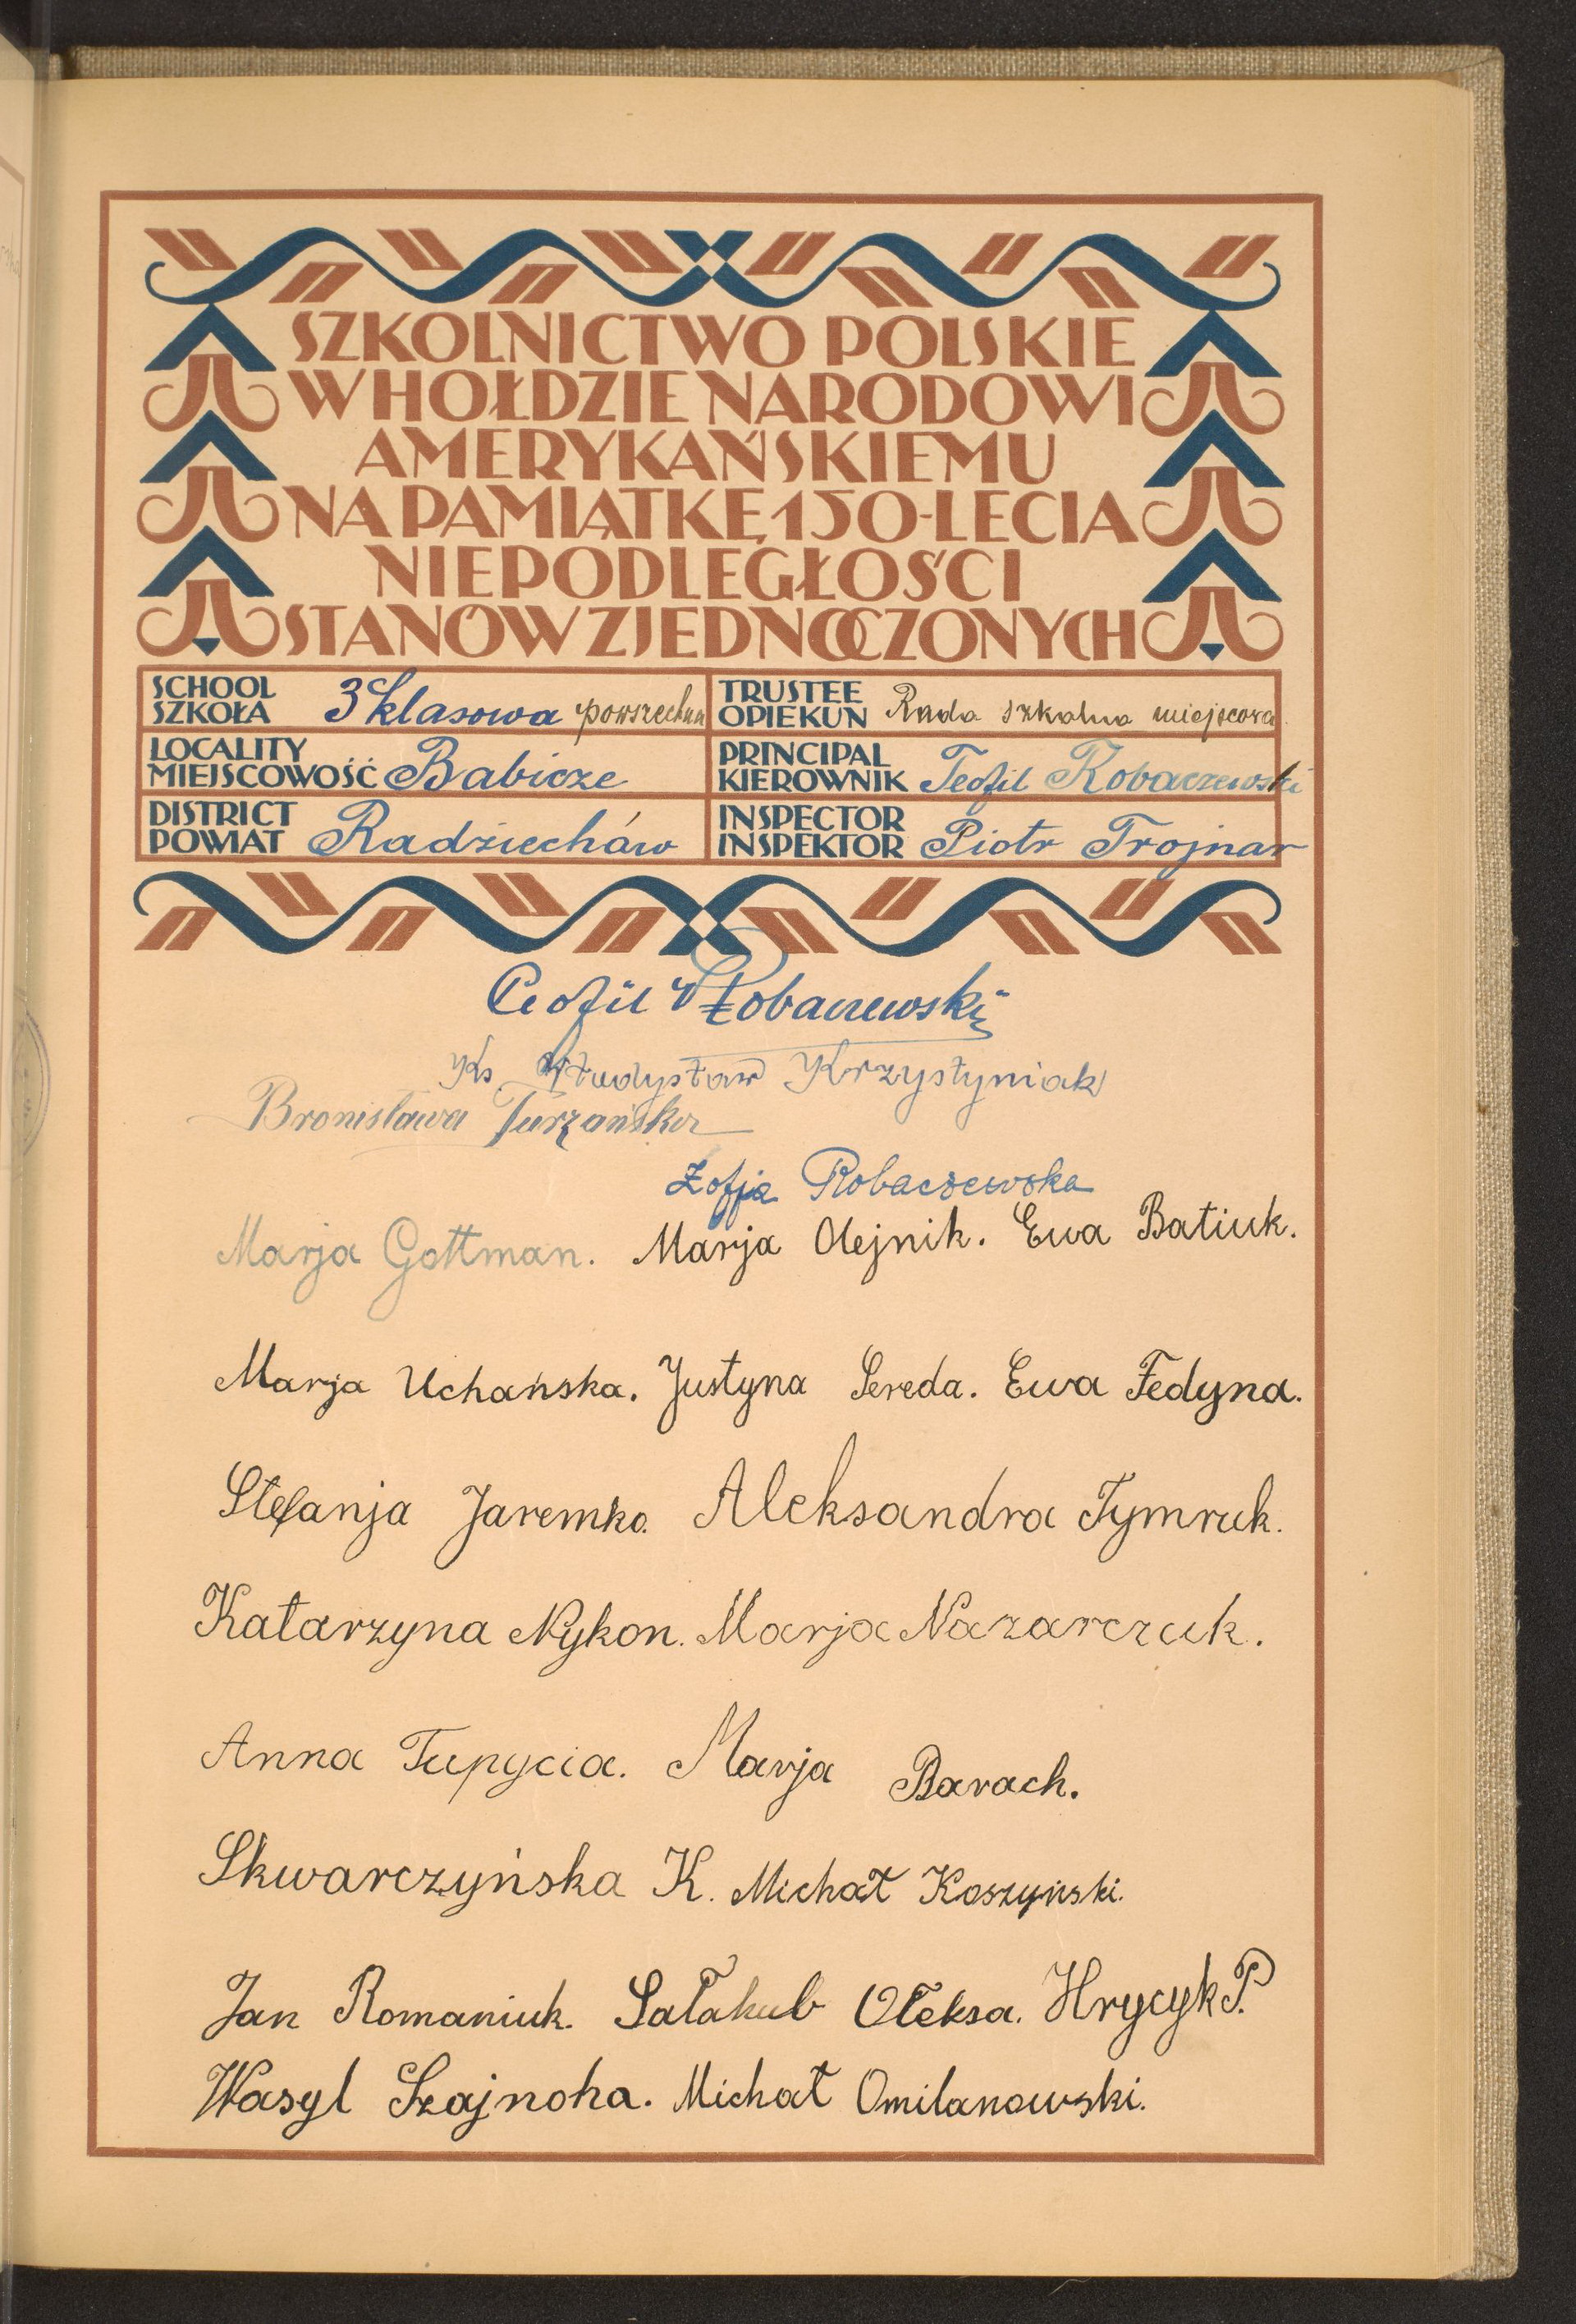 SZKOLNICTWO POLSKIE
W HOŁDZIE NARODOWI
AMERYKAŃSKIEMU
NA PAMIĄTKĘ 150-LECIA
NIEPODLEGŁOŚCI
STANÓW ZJEDNOCZONYCH
SCHOOL
SZKOŁA 3 klasowa powszechna
TRUSTEE
OPIEKUN Rada szkolna miejscowa
LOCALITY
MIEJSCOWOŚĆ Babicze
PRINCIPAL
KIEROWNIK Teofil Robaczewski
DISTRICT
POWIAT Radziechów
INSPECTOR
INSPEKTOR Piotr Trojnar
Teofil Robaczewski
Ks. Władysław Krzystyniak
Bronisława Turzańska
Zofja Robaczewska
Marja Gottman. Marja Olejnik. Ewa Batiuk.
Marja Uchańska. Justyna Sereda. Ewa Fedyna.
Stefanja Jaremko. Aleksandra Tymruk.
Katarzyna Nykon. Marja Nazarczuk.
Anna Tupycia. Marja Barach.
Skwarczyńska K. Michał Koszyński.
Jan Romaniuk. Sałakub Ołeksa. Hrycyk P.
Wasyl Szajnoha. Michał Omilanowski.